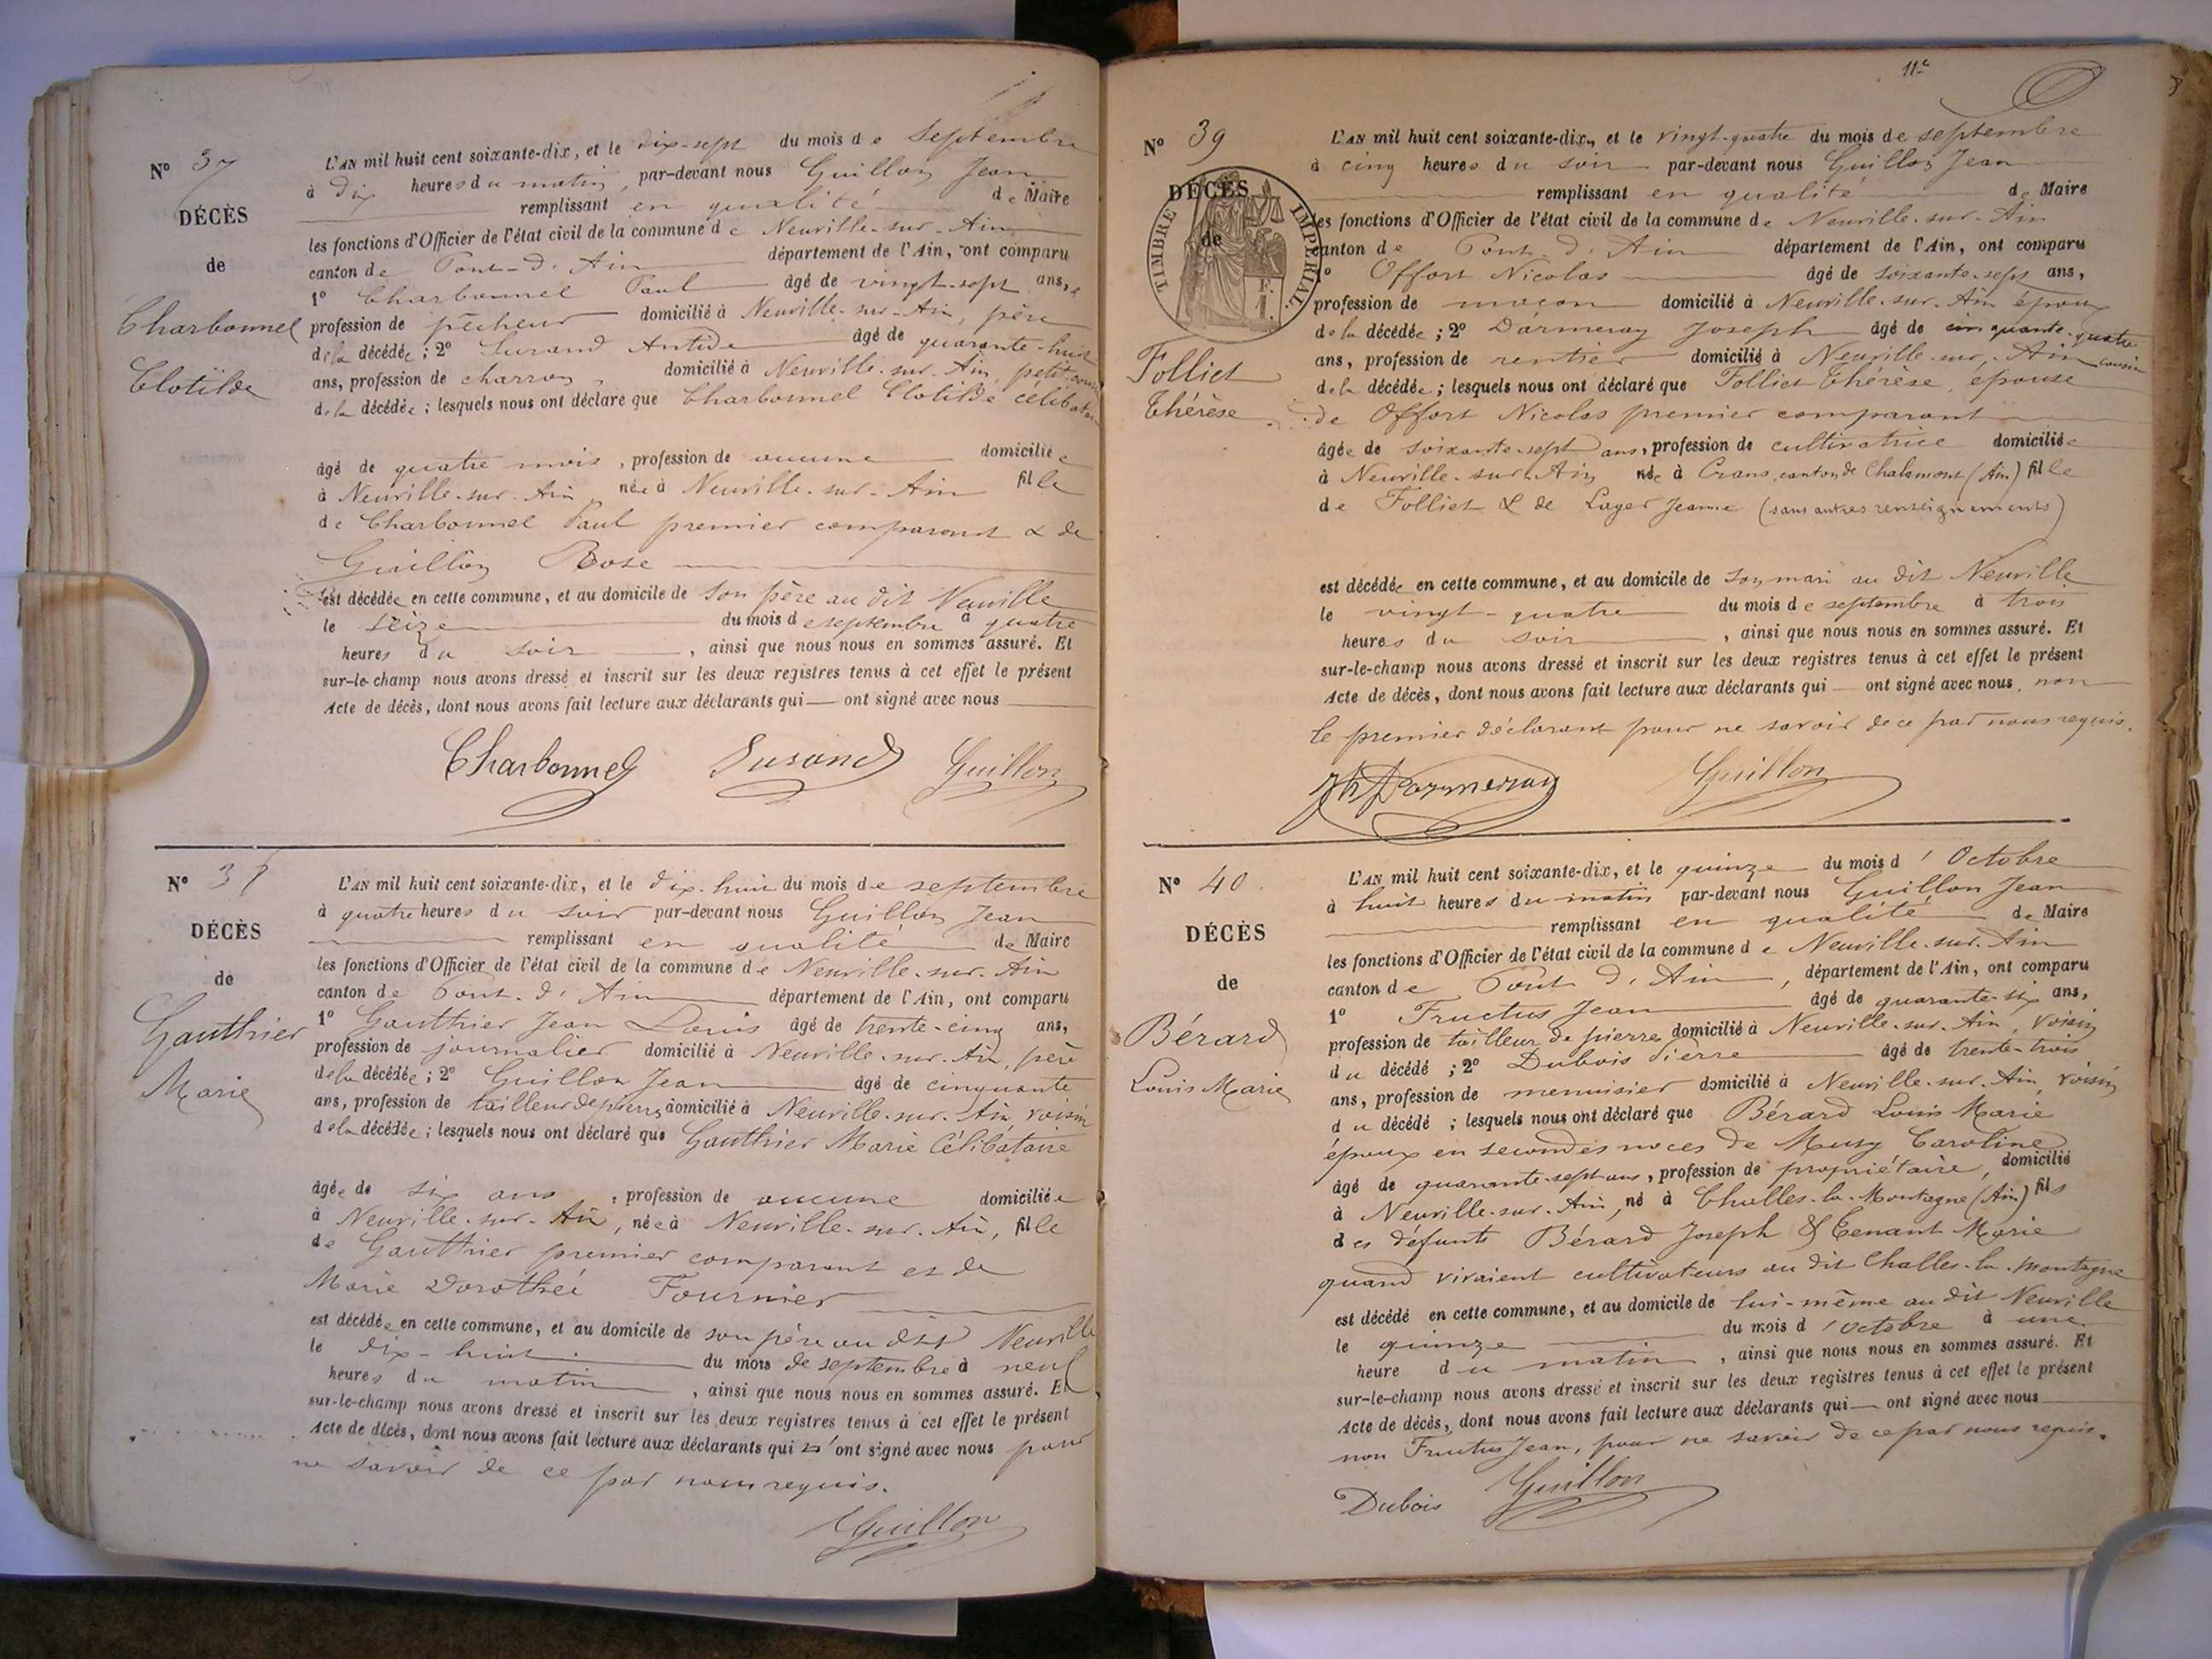 Nº 37
DÉCÈS
de
Charbonnel
Clotilde
L'AN mil huit cent soixante-dix, et le dix-sept du mois de Septembre
à dix heures du matin, par-devant nous Guillon Jean
remplissant en qualité de Maire
les fonctions d'Officier de l'état civil de la commune de Neuville-sur-Ain
canton de Pont-d'Ain département de l'Ain, ont comparu
1º Charbonnel Paul âgé de vingt-sept ans,
profession de pêcheur domicilié à Neuville-sur-Ain, père
de la décédée ; 2º Surand Antide âgé de quarante-huit
ans, profession de charron, domicilié à Neuville-sur-Ain, petit-cousin
de la décédée ; lesquels nous ont déclaré que Charbonnel Clotilde célibataire
âgé de quatre mois, profession de aucune domiciliée
à Neuville-sur-Ain, née à Neuville-sur-Ain fille
de Charbonnel Paul premier comparant & de
Guillon Rose
est décédée en cette commune, et au domicile de son père au dit Neuville
le seize du mois de septembre à quatre
heures du soir, ainsi que nous nous en sommes assuré. Et
sur-le-champ nous avons dressé et inscrit sur les deux registres tenus à cet effet le présent
Acte de décès, dont nous avons fait lecture aux déclarants qui — ont signé avec nous
Charbonnel Surand Guillon
Nº 38
DÉCÈS
de
Gauthier
Marie
L'AN mil huit cent soixante-dix, et le dix-huit du mois de septembre
à quatre heures du soir par-devant nous Guillon Jean
remplissant en qualité de Maire
les fonctions d'Officier de l'état civil de la commune de Neuville-sur-Ain
canton de Pont-d'Ain département de l'Ain, ont comparu
1º Gauthier Jean Louis âgé de trente-cinq ans,
profession de journalier domicilié à Neuville-sur-Ain, père
de la décédée ; 2º Guillon Jean âgé de cinquante
ans, profession de tailleur de pierres, domicilié à Neuville-sur-Ain, voisin
de la décédée ; lesquels nous ont déclaré que Gauthier Marie Célibataire
âgée de six ans, profession de aucune domiciliée
à Neuville-sur-Ain, née à Neuville-sur-Ain, fille
de Gauthier premier comparant et de
Marie Dorothée Fournier
est décédée en cette commune, et au domicile de son père au dit Neuville
le dix-huit du mois de septembre à neuf
heures du matin, ainsi que nous nous en sommes assuré. Et
sur-le-champ nous avons dressé et inscrit sur les deux registres tenus à cet effet le présent
Acte de décès, dont nous avons fait lecture aux déclarants qui n'ont signé avec nous pour
ne savoir de ce par nous requis.
Guillon
11e
Nº 39
DÉCÈS
de
TIMBRE IMPÉRIAL
F.
1.
Folliet
Thérèse
L'AN mil huit cent soixante-dix, et le vingt-quatre du mois de septembre
à cinq heures du soir par-devant nous Guillon Jean
remplissant en qualité de Maire
les fonctions d'Officier de l'état civil de la commune de Neuville-sur-Ain
canton de Pont d'Ain département de l'Ain, ont comparu
1º Offort Nicolas âgé de soixante-sept ans,
profession de maçon domicilié à Neuville-sur-Ain époux
de la décédée ; 2º Darmeray Joseph âgé de cinquante-quatre
ans, profession de rentier domicilié à Neuville-sur-Ain cousin
de la décédée ; lesquels nous ont déclaré que Folliet Thérèse, épouse
de Offort Nicolas premier comparant
âgée de soixante-sept ans, profession de cultivatrice domiciliée
à Neuville-sur-Ain née à Crans, canton de Chalamont (Ain) fille
de Folliet & de Layer Jeanne (sans autres renseignements)
est décédée en cette commune, et au domicile de son mari au dit Neuville
le vingt-quatre du mois de septembre à trois
heures du soir, ainsi que nous nous en sommes assuré. Et
sur-le-champ nous avons dressé et inscrit sur les deux registres tenus à cet effet le présent
Acte de décès, dont nous avons fait lecture aux déclarants qui — ont signé avec nous, non
le premier déclarant pour ne savoir de ce par nous requis.
Jh Darmeray Guillon
Nº 40.
DÉCÈS
de
Bérard
Louis Marie
L'AN mil huit cent soixante-dix, et le quinze du mois d'Octobre
à huit heures du matin par-devant nous Guillon Jean
remplissant en qualité de Maire
les fonctions d'Officier de l'état civil de la commune de Neuville-sur-Ain
canton de Pont d'Ain, département de l'Ain, ont comparu
1º Fructus Jean âgé de quarante-six ans,
profession de tailleur de pierre, domicilié à Neuville-sur-Ain, voisin
du décédé ; 2º Dubois Pierre âgé de trente-trois
ans, profession de menuisier domicilié à Neuville-sur-Ain, voisin
du décédé ; lesquels nous ont déclaré que Bérard Louis Marie
époux en secondes noces de Musy Caroline
âgé de quarante-sept ans, profession de propriétaire, domicilié
à Neuville-sur-Ain, né à Challes-la-Montagne (Ain) fils
des défunts Bérard Joseph & Tenant Marie
quand vivaient cultivateurs au dit Challes-la-Montagne
est décédé en cette commune, et au domicile de lui-même au dit Neuville
le quinze du mois d'octobre à une
heure du matin, ainsi que nous nous en sommes assuré. Et
sur-le-champ nous avons dressé et inscrit sur les deux registres tenus à cet effet le présent
Acte de décès, dont nous avons fait lecture aux déclarants qui — ont signé avec nous
non Fructus Jean, pour ne savoir de ce par nous requis.
Dubois Guillon